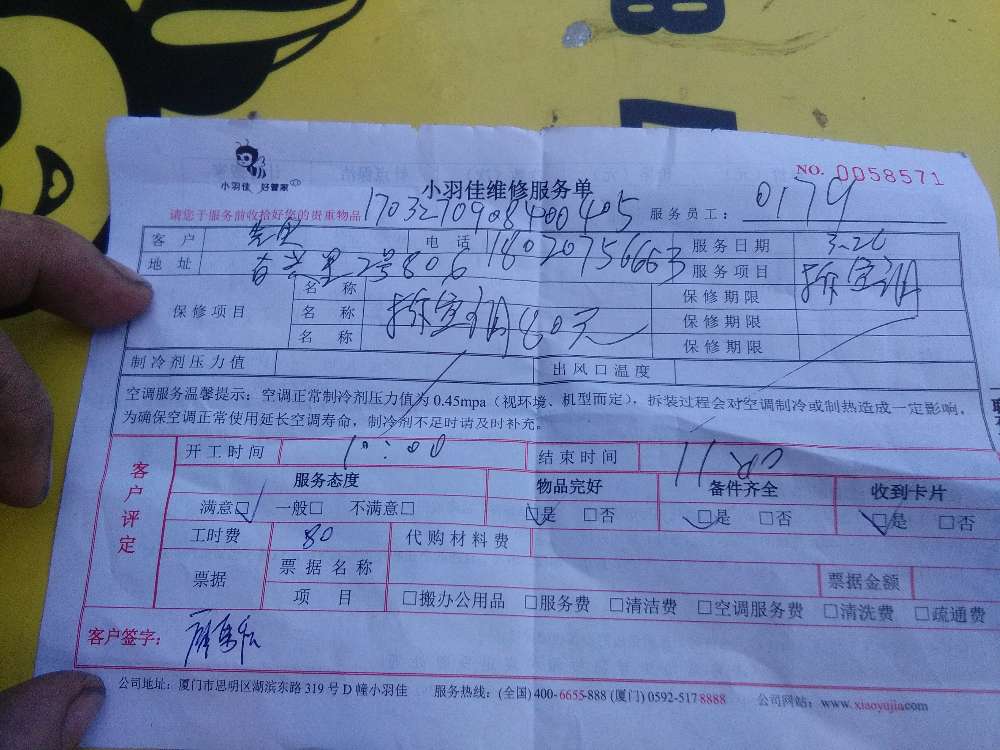 小羽佳 好管家
NO. 0058571
小羽佳维修服务单
请您于服务前收拾好您的贵重物品 1703270908400405 服务员工: 0179
客户 电话 18020756663 服务日期 3.26
地址 2号806 服务项目 拆空调
保修项目 名称 保修期限
名称 拆空调80元 保修期限
名称 保修期限
制冷剂压力值 出风口温度
空调服务温馨提示:空调正常制冷剂压力值为 0.45mpa(视环境、机型而定),拆装过程会对空调制冷或制热造成一定影响,
为确保空调正常使用延长空调寿命,制冷剂不足时请及时补充。
客户评定
开工时间 10:00 结束时间
服务态度 物品完好 备件齐全 收到卡片
满意□ 一般□ 不满意□ □是 □否 □是 □否 □是 □否
工时费 80 代购材料费
票据 票据名称 票据金额
项目 □搬办公用品 □服务费 □清洁费 □空调服务费 □清洗费 □疏通费
客户签字:
公司地址:厦门市思明区湖滨东路 319 号 D 幢小羽佳 服务热线:(全国)400-6655-888 (厦门) 0592-5178888 公司网站:www.xiaoyujia.com